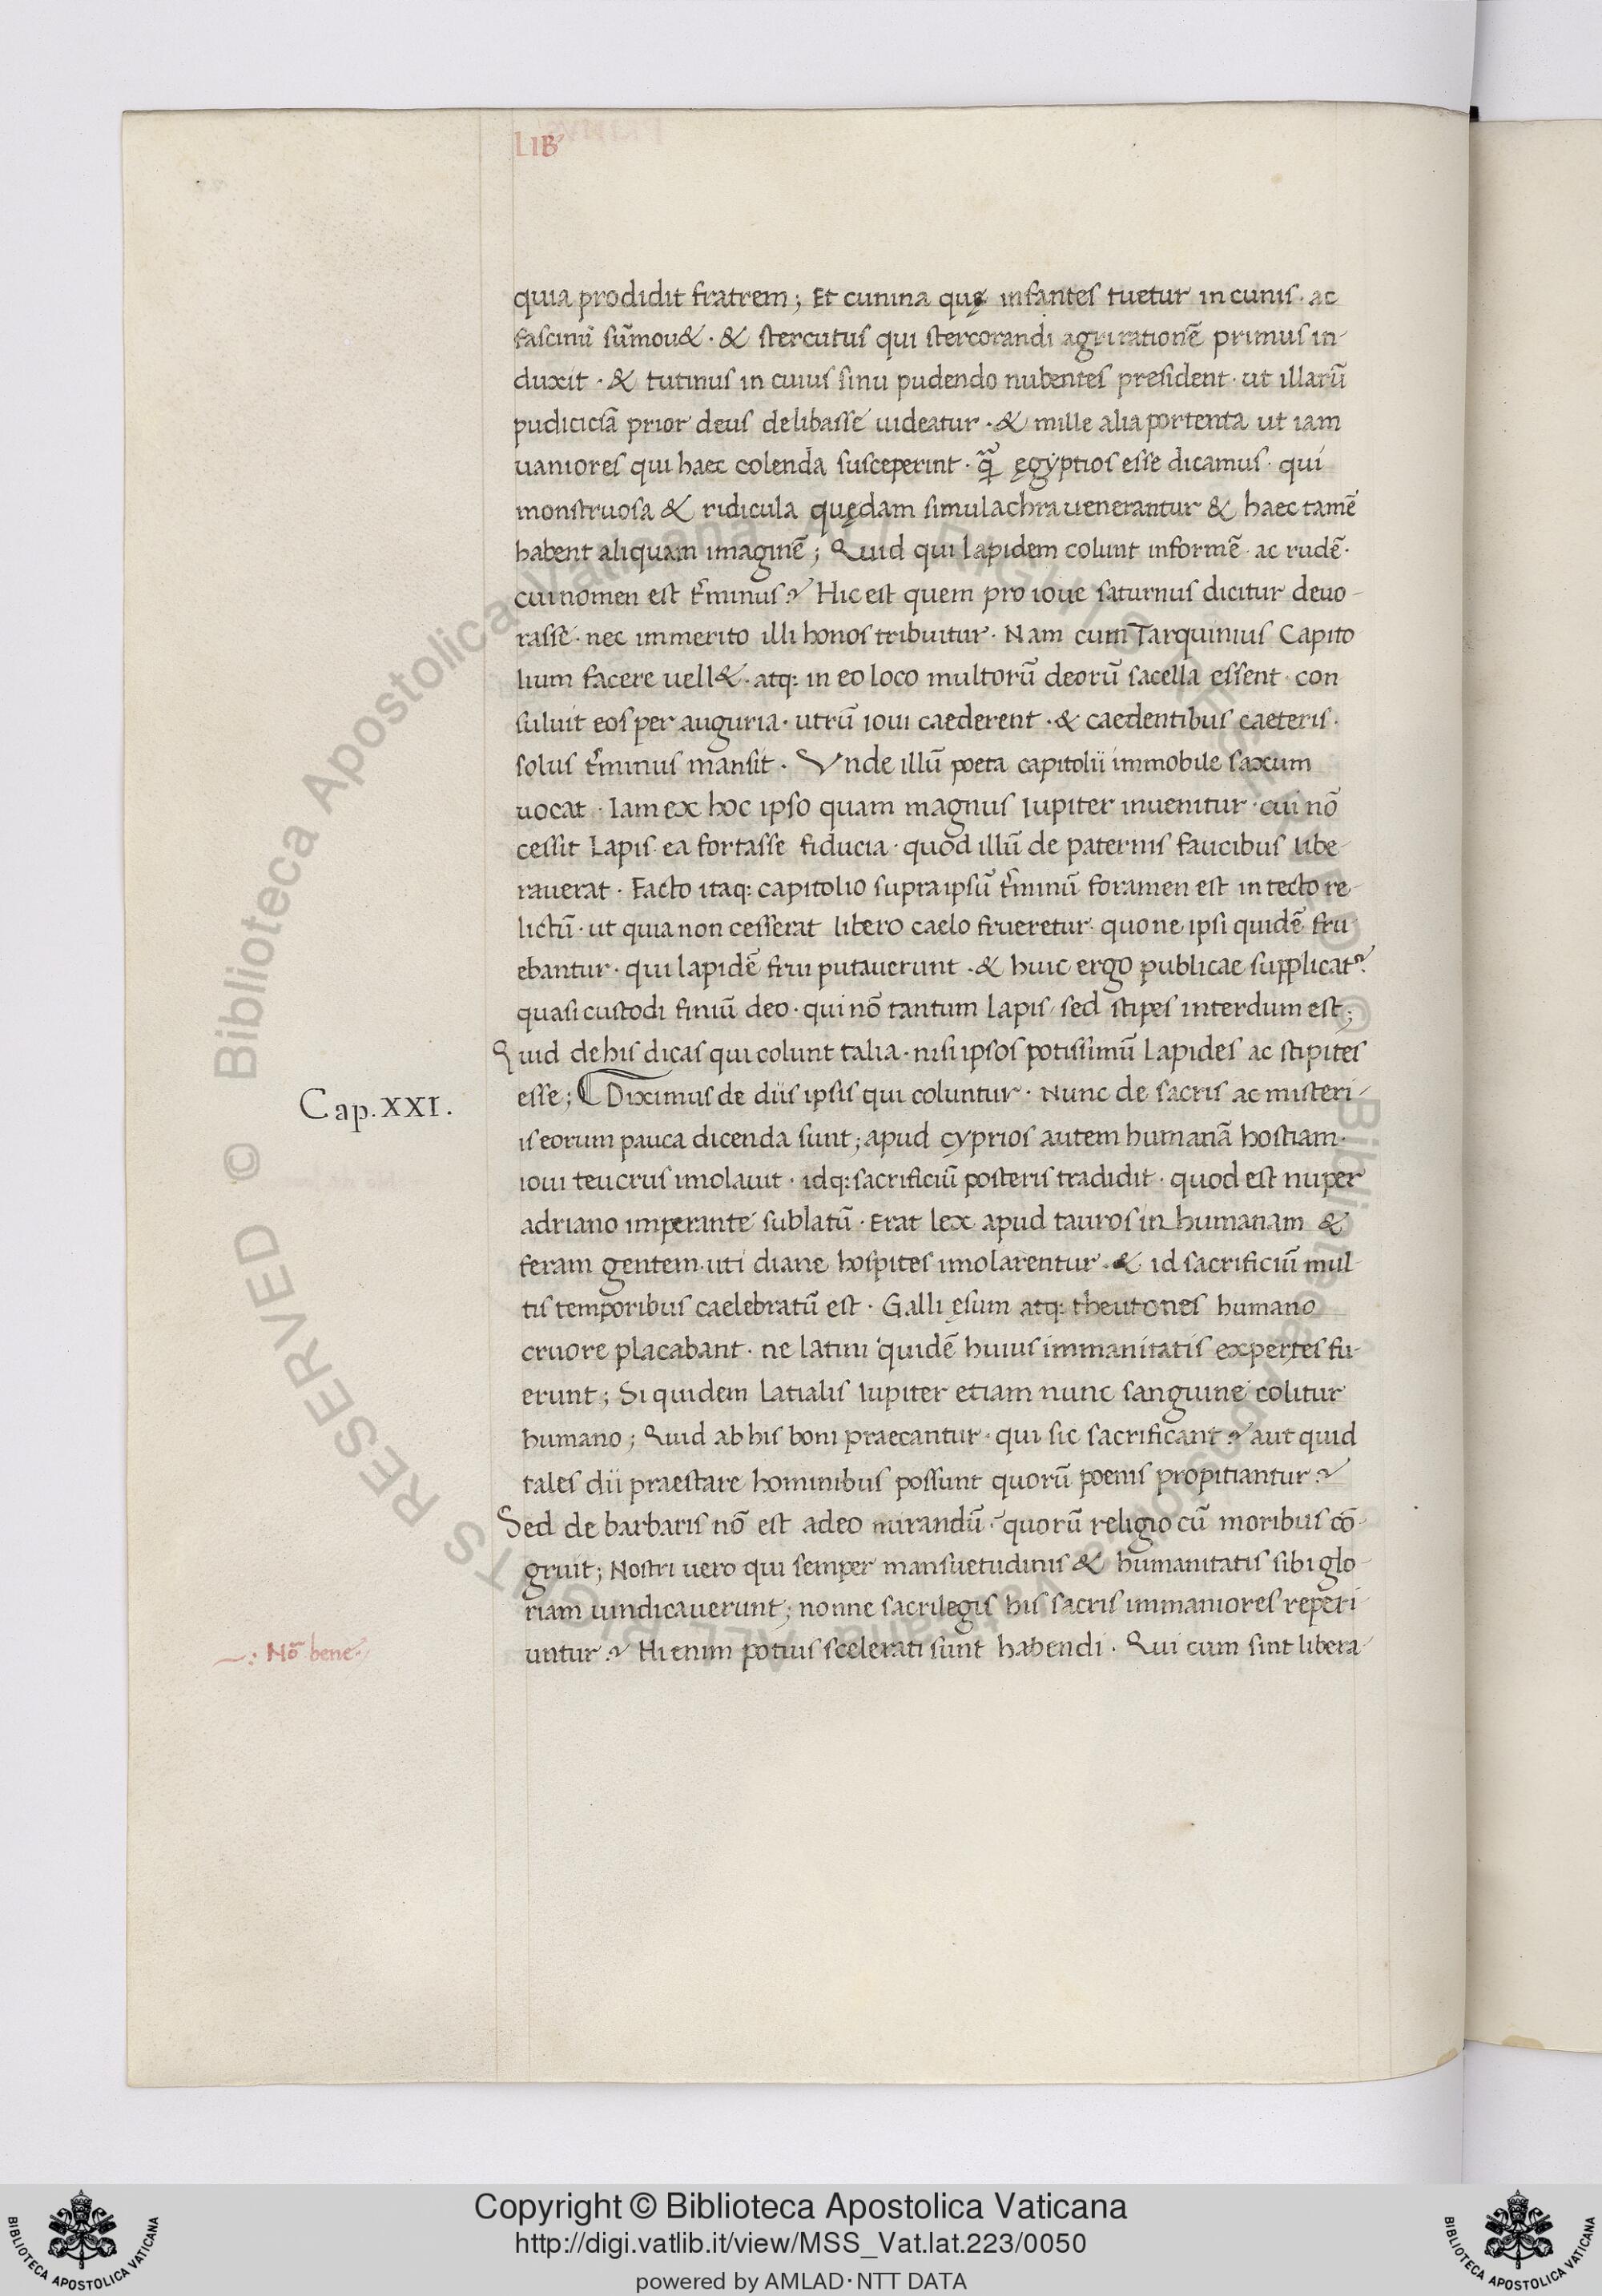 LIB
quia prodidit fratrem; Et cunina quę infantes tuetur in cunis · ac
fascinū sūmou& · & stercutus qui stercorandi agri rationē primus in-
duxit · & tutinus in cuius sinu pudendo nubentes president · ut illarū
pudiciciā prior deus delibasse uideatur · & mille alia portenta ut iam
uaniores qui haec colenda susceperint · q̄ ęgyptios esse dicamus · qui
monstruosa & ridicula quędam simulachra uenerantur & haec tamē
habent aliquam imaginē; Quid qui lapidem colunt informē ac rudē ·
cui nomen est t̄minus? Hic est quem pro ioue saturnus dicitur deuo-
rasse · nec immerito illi honos tribuitur · Nam cum Tarquinius Capito
lium facere uell& · atq: in eo loco multorū deorū sacella essent · con
suluit eos per auguria · utrū ioui caederent · & caedentibus caeteris ·
solus t̄minus mansit · Vnde illū poeta capitolii immobile saxum
uocat · Iam ex hoc ipso quam magnus Iupiter inuenitur · cui nō
cessit Lapis ea fortasse fiducia · quod illū de paternis faucibus libe-
rauerat · Facto itaq: capitolio supra ipsū t̄minū foramen est in tecto re-
lictū · ut quia non cesserat libero caelo frueretur · quo ne ipsi quidē fru-
ebantur · qui lapidē frui putauerunt · & huic ergo publicae supplicat̄
quasi custodi finiū deo · qui nō tantum lapis / sed stipes interdum est;
Quid de his dicas qui colunt talia · nisi ipsos potissimū Lapides ac stipites
esse; Diximus de diis ipsis qui coluntur · Nunc de sacris ac misteri-
Cap. XXI.
is eorum pauca dicenda sunt; apud cyprios autem humanā hostiam ·
ioui teucrus imolauit · idq: sacrificiū posteris tradidit · quod est nuper
adriano imperante sublatū · Erat lex apud tauros in humanam &
feram gentem · uti diane hospites imolarentur · & id sacrificiū mul-
tis temporibus caelebratū est · Galli ęsum atq: theutones humano
cruore placabant · ne latini quidē huius immanitatis expertes fu-
erunt; Si quidem Latialis Iupiter etiam nunc sanguine colitur
humano; Quid ab his boni praecantur · qui sic sacrificant? aut quid
tales dii praestare hominibus possunt quorū poenis propitiantur?
Sed de barbaris nō est adeo mirandū · quorū religio cū moribus cō-
gruit; Nostri uero qui semper mansuetudinis & humanitatis sibi glo-
riam uindicauerunt; nonne sacrilegis his sacris immaniores reperi-
untur? Hi enim potius scelerati sunt habendi · Qui cum sint libera-
Nō bene
© Biblioteca Apostolica Vaticana ALL RIGHTS RESERVED
Copyright © Biblioteca Apostolica Vaticana
http://digi.vatlib.it/view/MSS_Vat.lat.223/0050
powered by AMLAD·NTT DATA
BIBLIOTECA APOSTOLICA VATICANA
BIBLIOTECA APOSTOLICA VATICANA